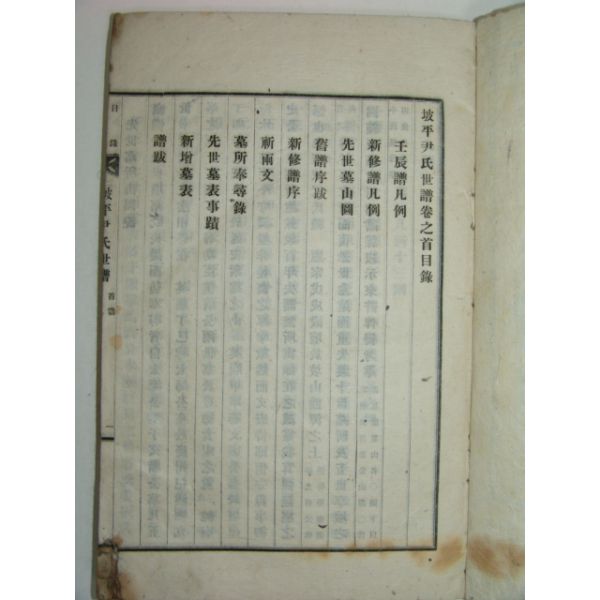 坡平尹氏世譜卷之首目錄
壬辰譜凡例
新修譜凡例
先世墓山圖
舊譜序跋
新修譜序
祈雨文
墓所奉尋錄
先世墓表事蹟
新增墓表
譜跋
目錄
坡平尹氏世譜
首卷
一